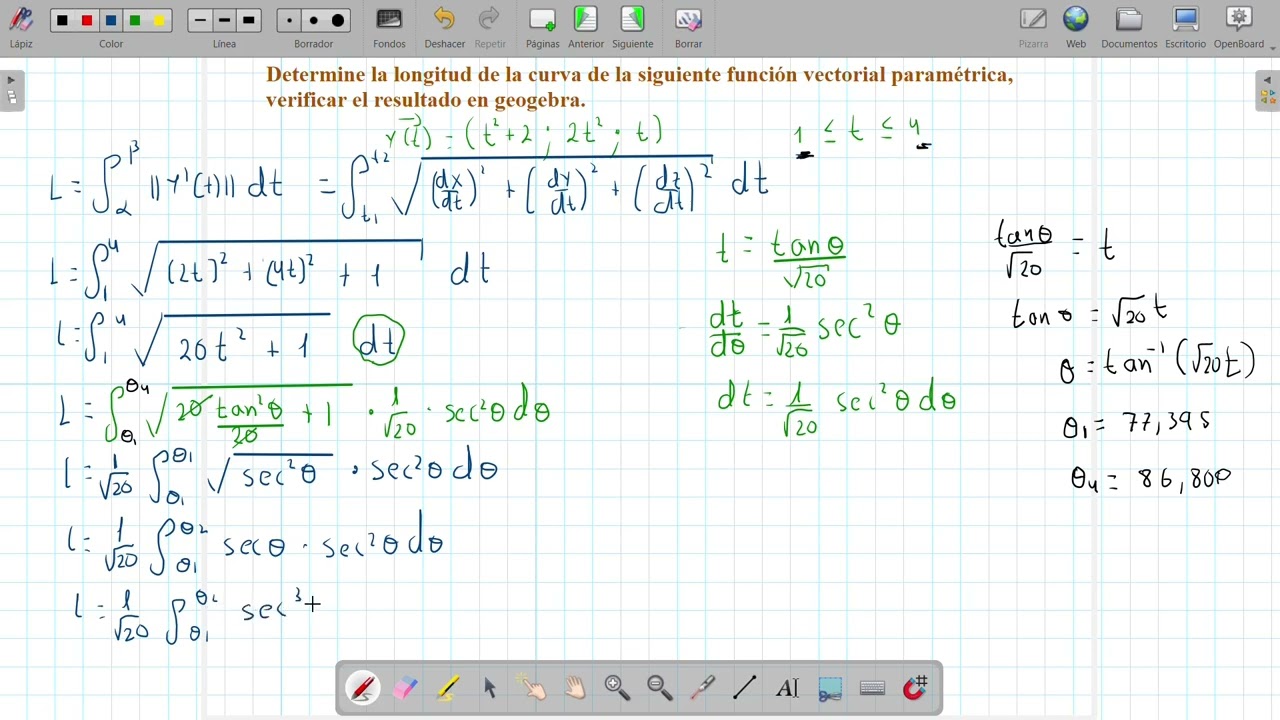 Lápiz Color Línea Borrador Fondos Deshacer Repetir Páginas Anterior Siguiente Borrar Pizarra Web Documentos Escritorio OpenBoard
Determine la longitud de la curva de la siguiente función vectorial paramétrica,
verificar el resultado en geogebra.
r(t) = (t²+2 ; 2t² ; t) 1 ≤ t ≤ 4
L = ∫_α^β ||r'(t)|| dt = ∫_t₁^t₂ √((dx/dt)² + (dy/dt)² + (dz/dt)²) dt
L = ∫₁⁴ √((2t)² + (4t)² + 1) dt
L = ∫₁⁴ √(20t² + 1) dt
L = ∫_θ₁^θ₄ √(20 tan²θ/20 + 1) · 1/√20 · sec²θ dθ
L = 1/√20 ∫_θ₁^θ₁ √(sec²θ) · sec²θ dθ
L = 1/√20 ∫_θ₁^θ₂ secθ · sec²θ dθ
L = 1/√20 ∫_θ₁^θ₂ sec³
t = tanθ/√20
dt/dθ = 1/√20 sec²θ
dt = 1/√20 sec²θ dθ
tanθ/√20 = t
tanθ = √20 t
θ = tan⁻¹(√20 t)
θ₁ = 77,395
θ₄ = 86,800
AI